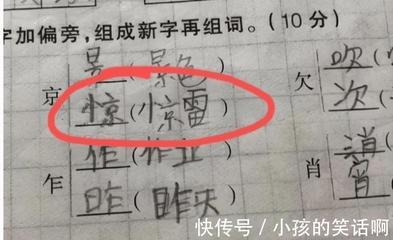 字加偏旁，组成新字再组词。（10分）
京
景（景色）
惊（惊雷）
乍
作（作业）
昨（昨天）
欠
吹（
次（
肖
消（
宵
快传号 / 小孩的笑话啊